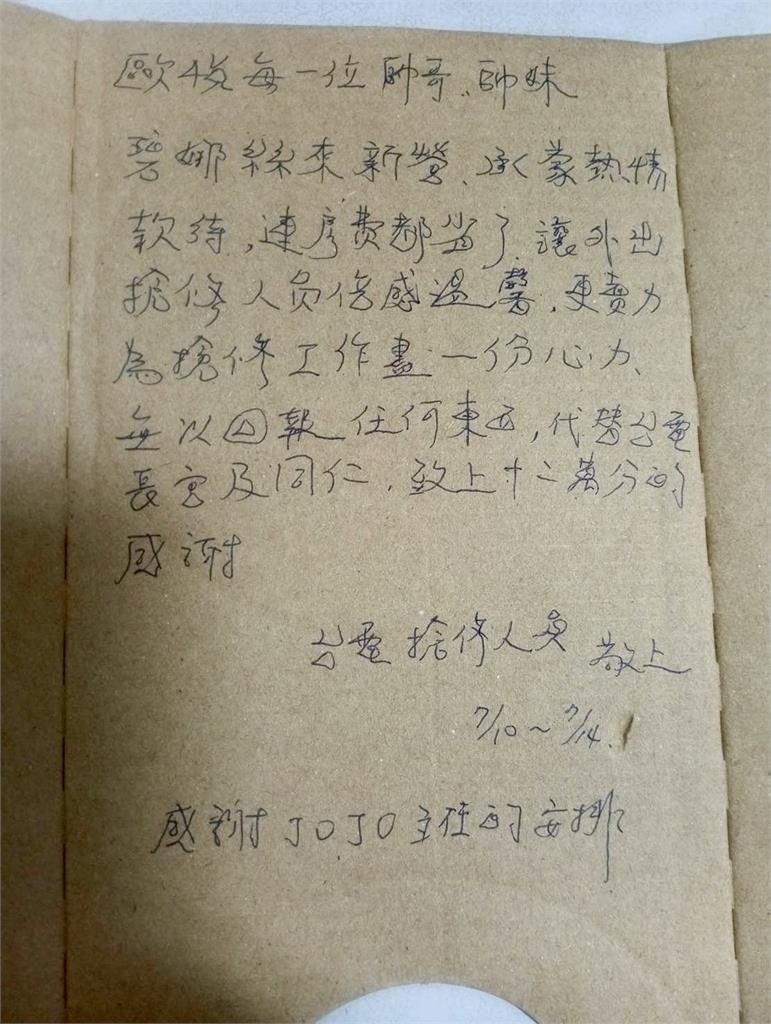 歐悅每一位帥哥、帥妹
碧娜絲來新營、承蒙熱情
款待,連房費都省了讓外出
搶修人員倍感溫馨,更賣力
為搶修工作盡一份心力、
無以回報任何東西,代替台電
長官及同仁,致上十二萬分的
感謝
台電搶修人員 敬上
7/10~7/14.
感謝JOJO主任的安排